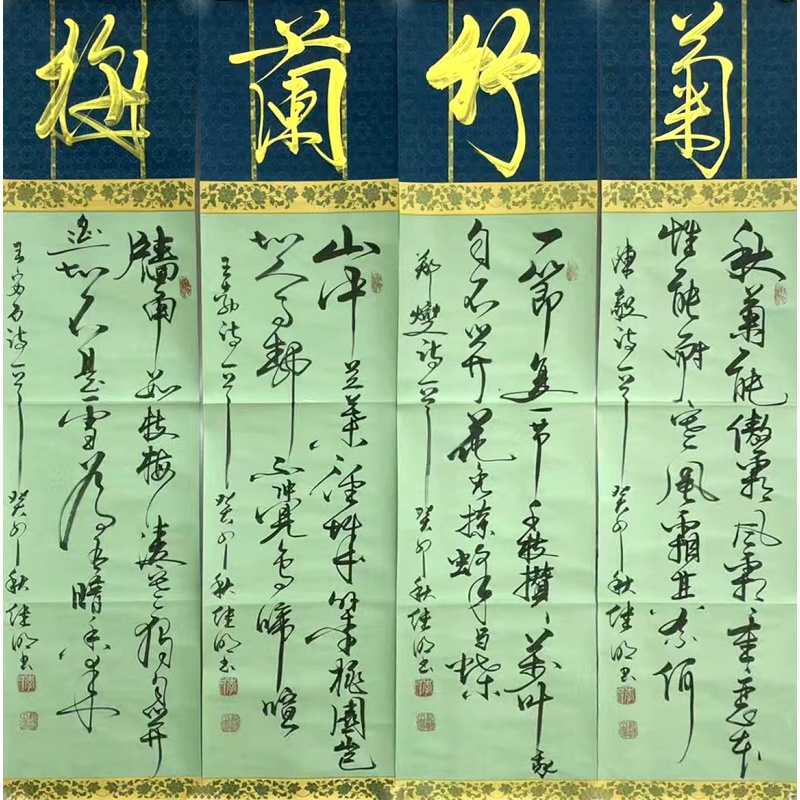 梅
牆角数枝梅凌寒独自开
遥知不是雪为有暗香来
王安石诗一首 癸卯秋 明书
蘭
山中兰叶径城外李桃園岂
知人事静不觉鸟啼喧
王勃诗一首 癸卯秋 明书
竹
一節复一节千枝攒万叶我
自不开花免撩蜂与蝶
郑燮诗一首 癸卯秋 明书
菊
秋菊能傲霜风霜重重恶本
性能耐寒风霜其奈何
陳毅诗一首 癸卯秋 明书